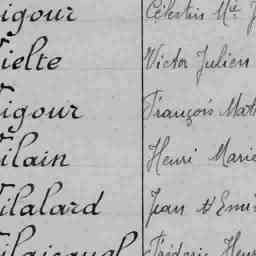 igour Célestin Mie J
ielte Victor Julien
igour François Math
ilain Henri Marie
ilalard Jean et Emi
Frédéric Henr